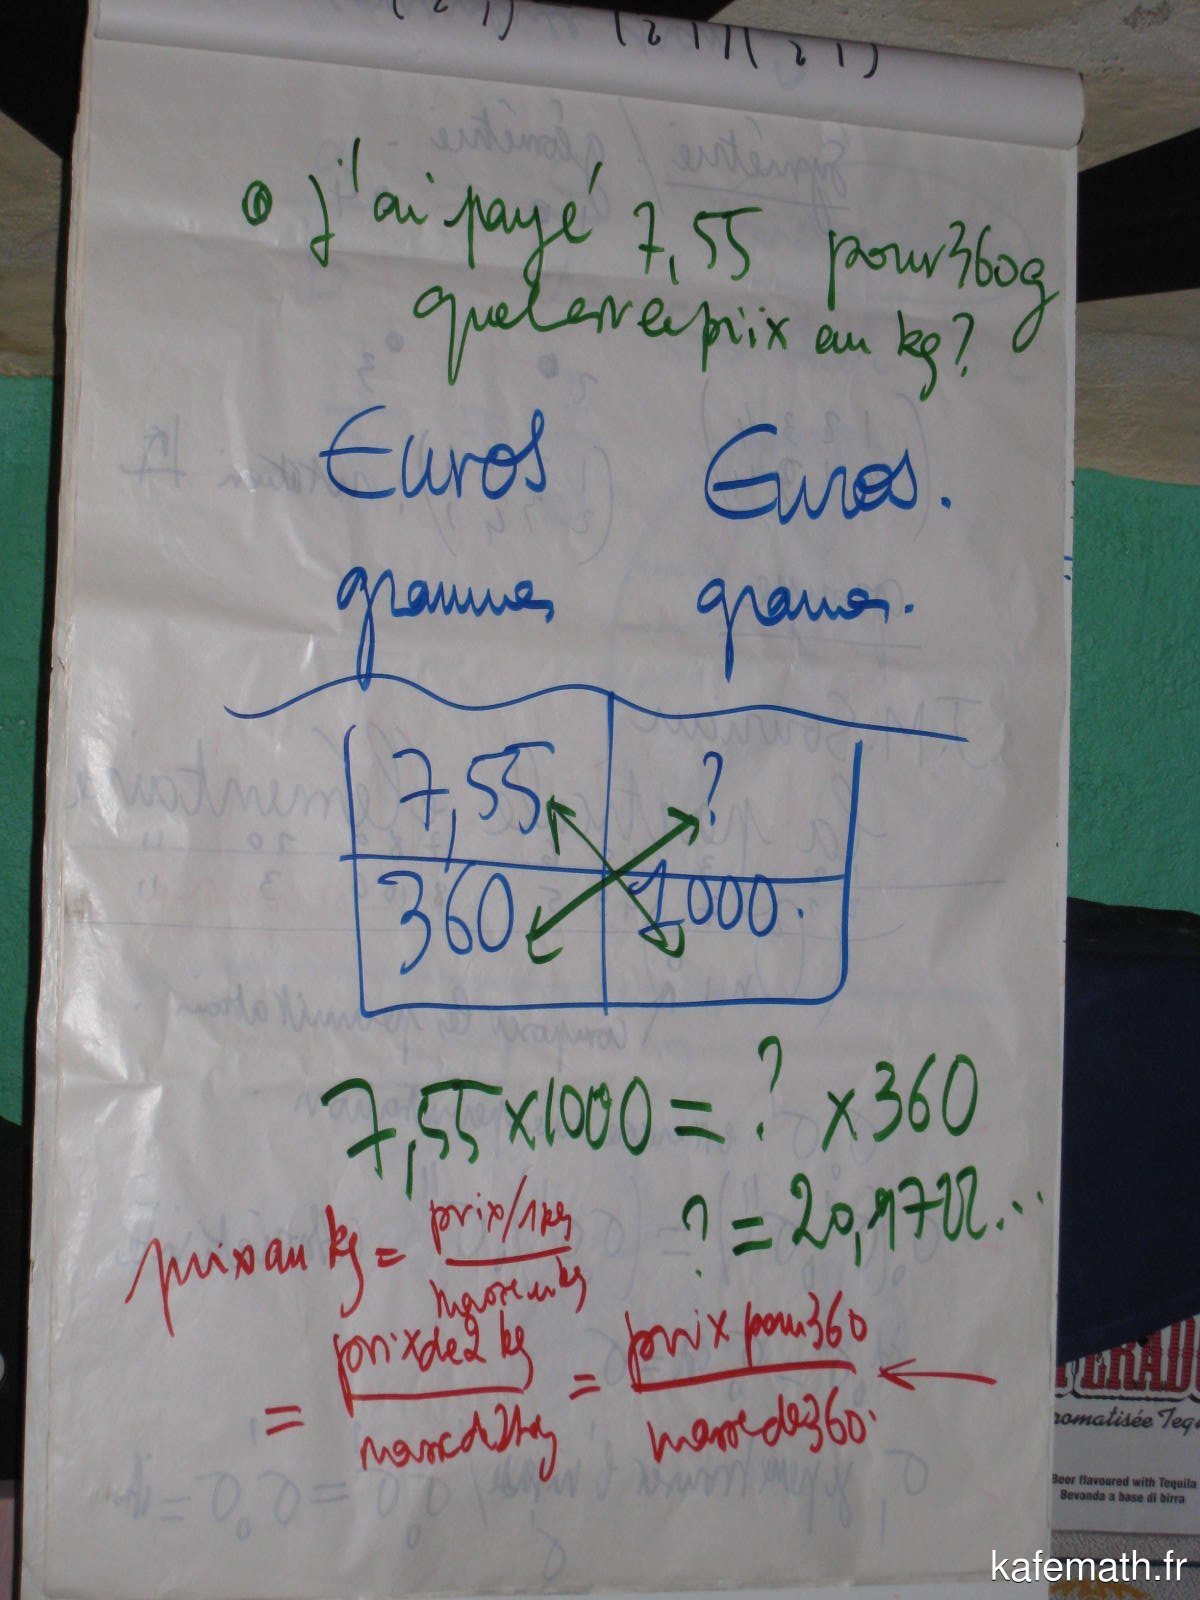 j'ai payé 7,55 pour 360g
quel est le prix au kg?
Euros Euros.
grammes grames.
7,55 ?
360 1000.
7,55 x 1000 = ? x 360
? = 20,9722...
prix au kg = prix/1kg
masse en kg
= prix de 2 kg = prix pour 360
masse de 2kg masse de 360.
PERAD
romatisée Teq
Beer flavoured with Tequila
Bevanda a base di birra
kafemath.fr